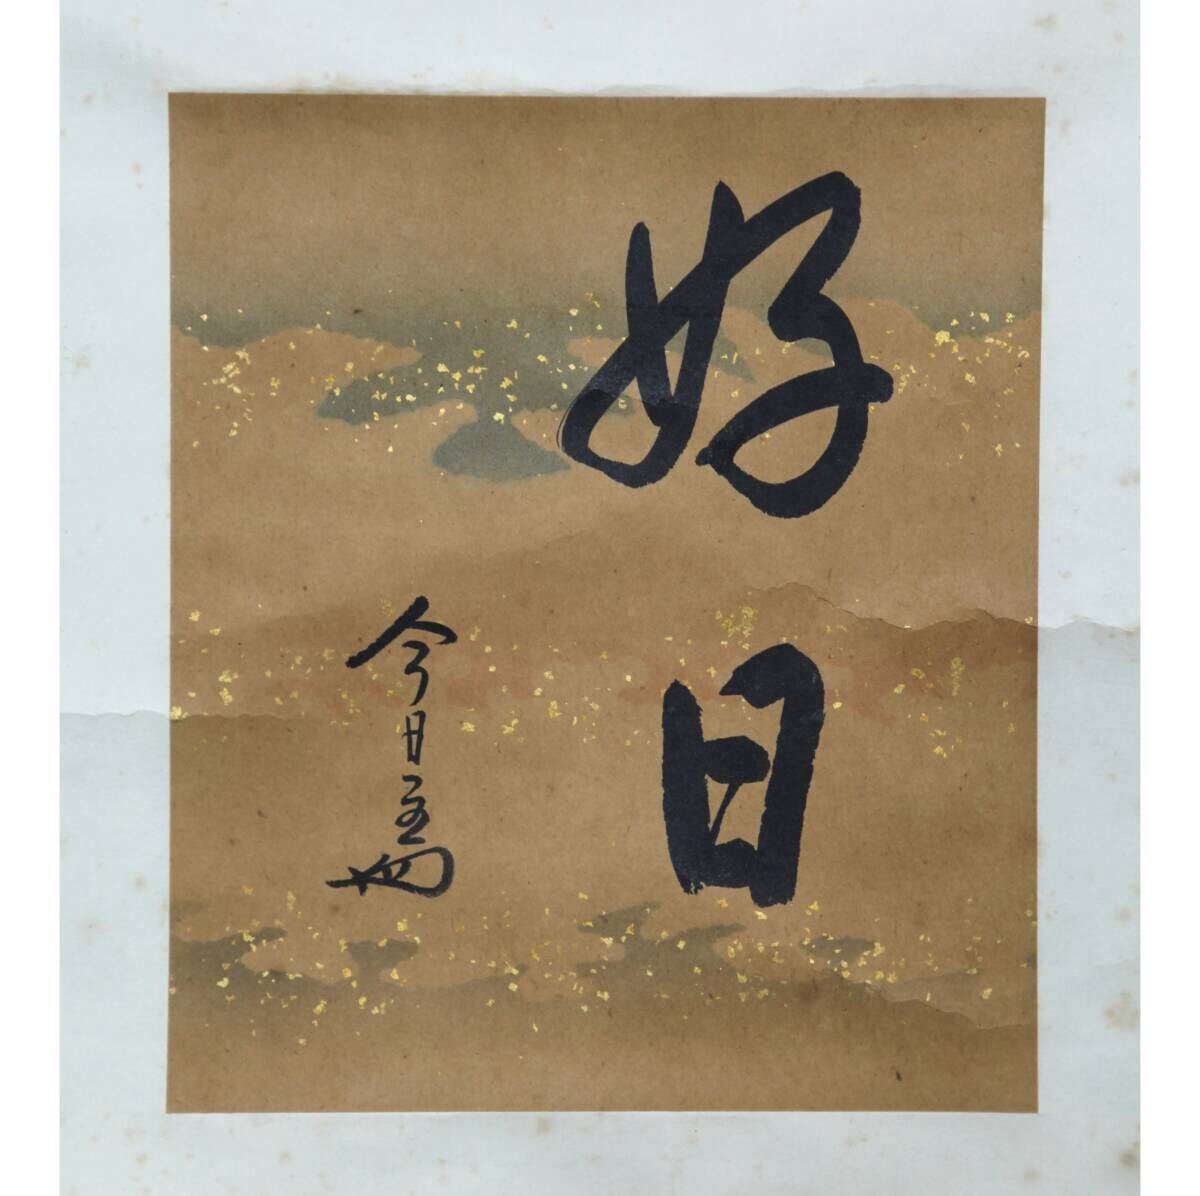 好日
今日主